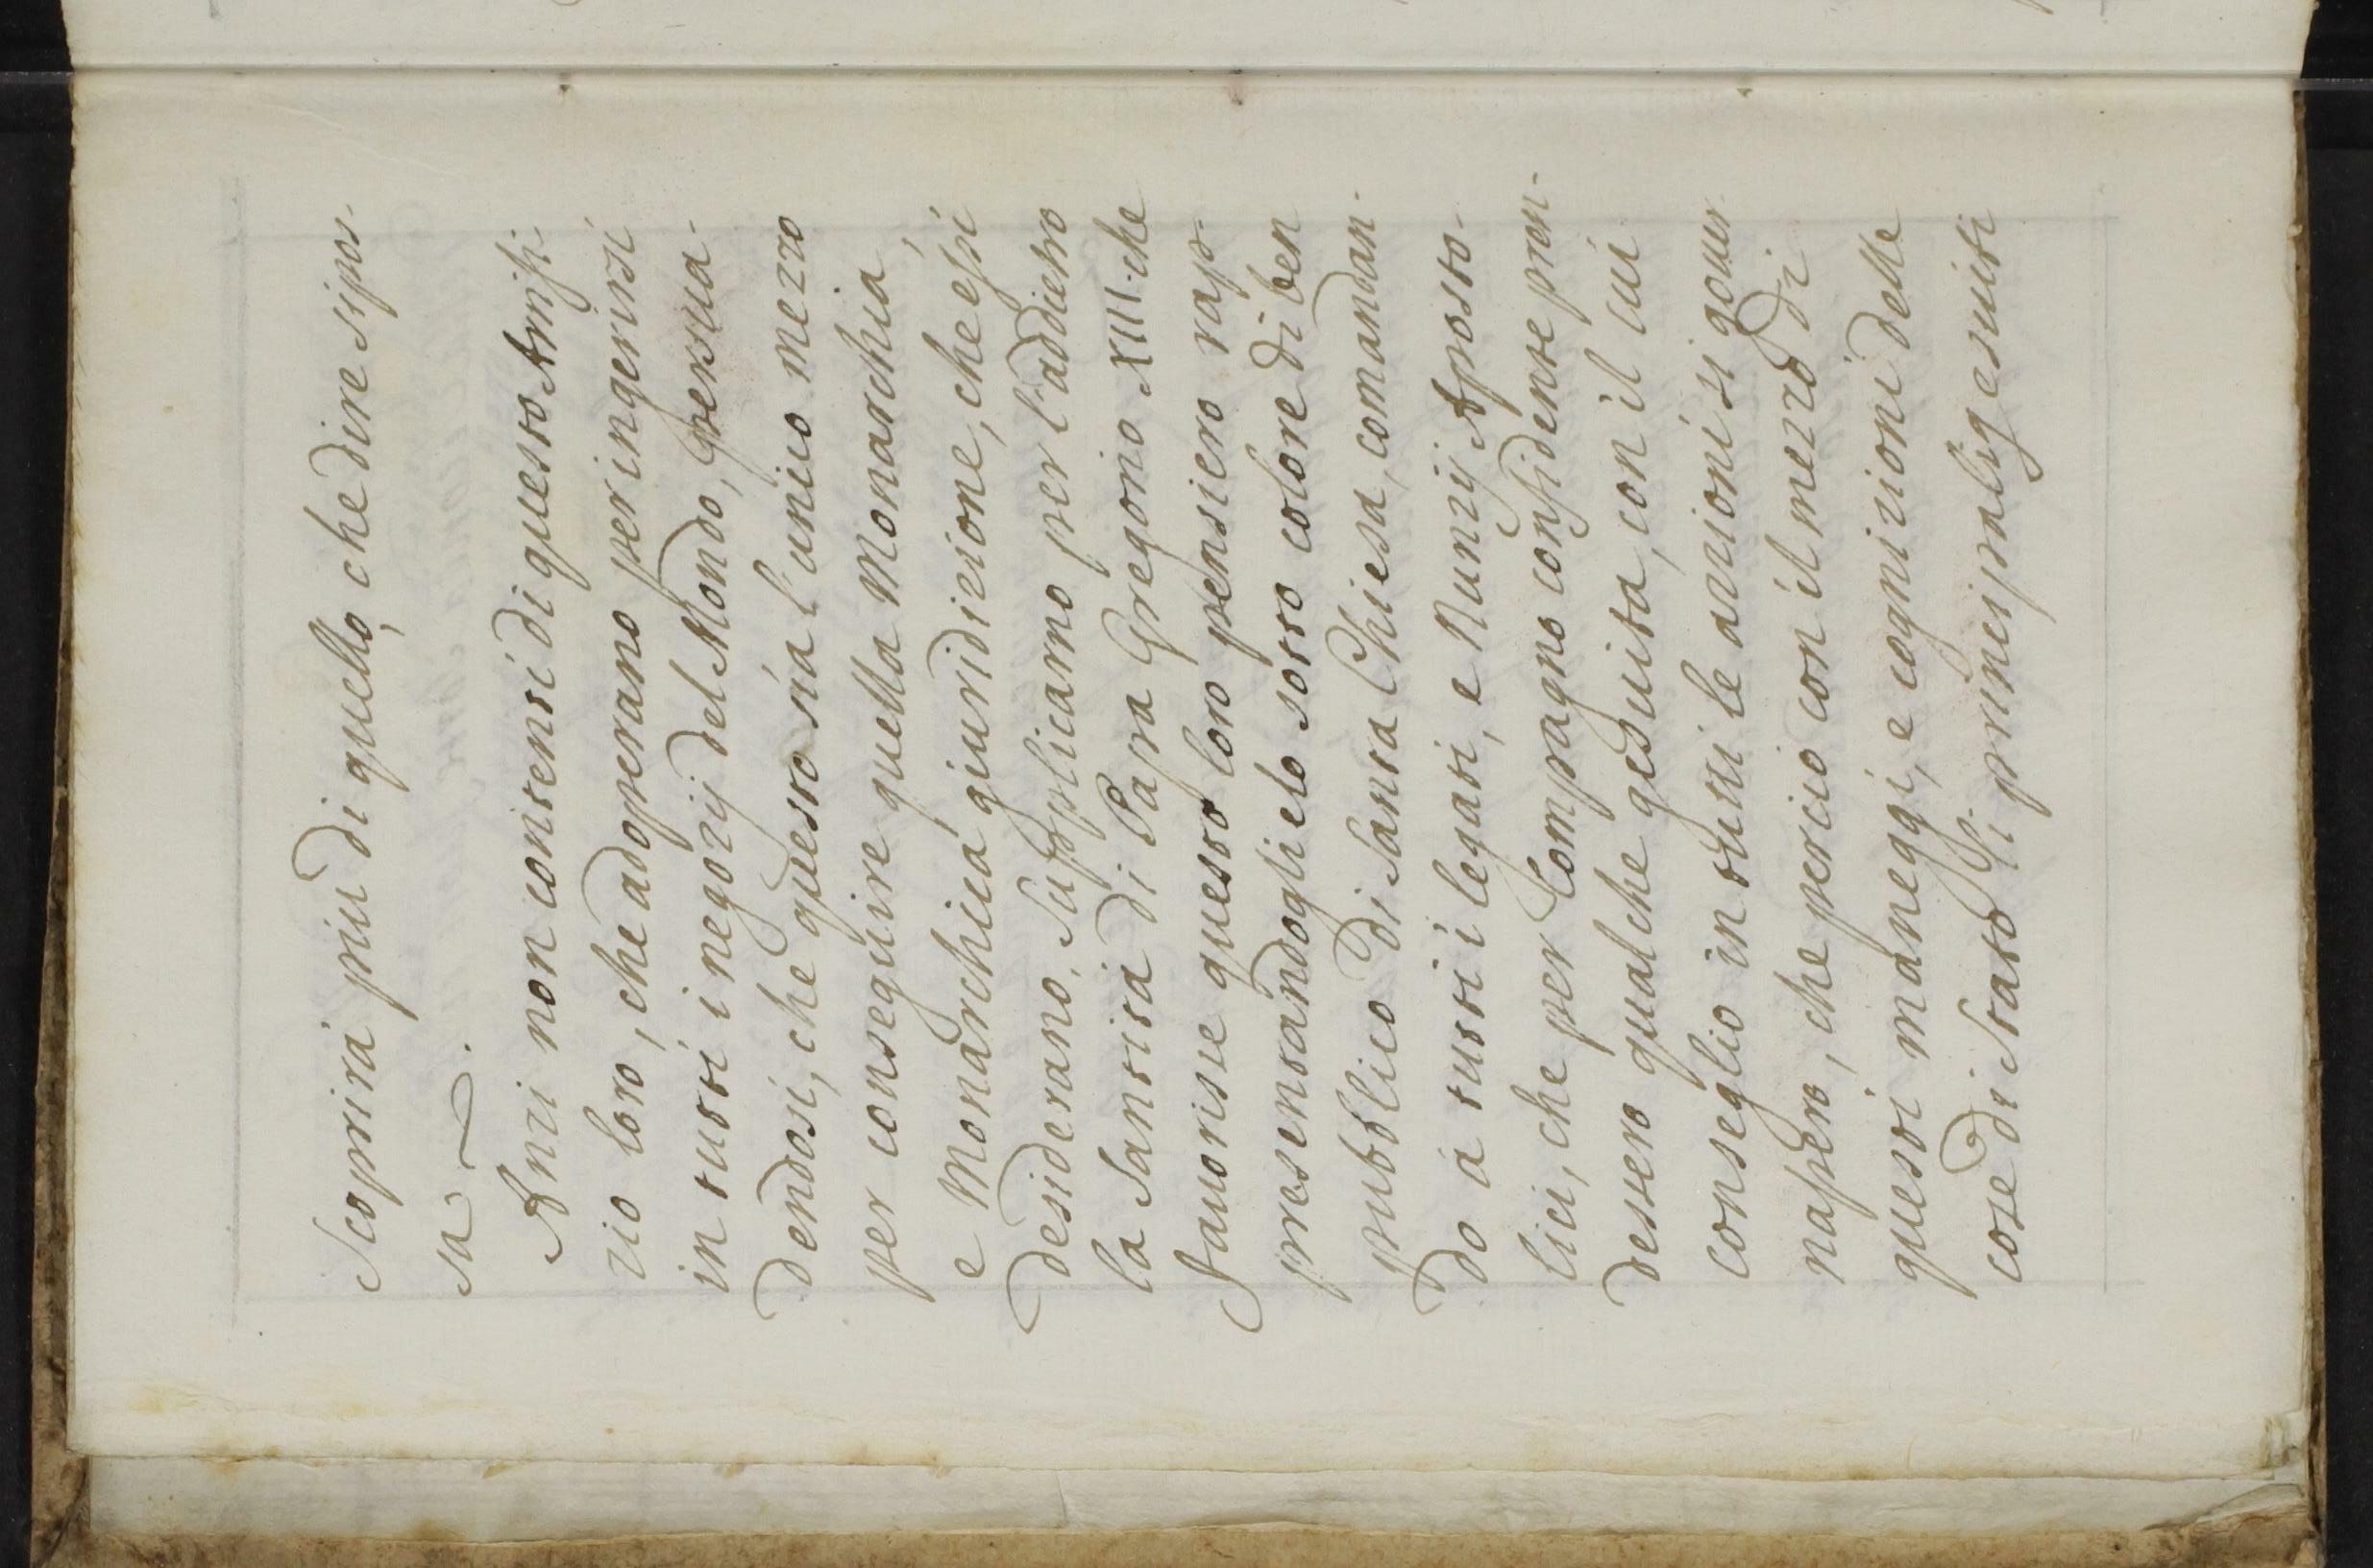 Scoprirà più di quello, che dire si pos-
sa.
Anzi non contenti di questo Artifi-
zio loro, che adoperano per ingerirsi
in tutti i negozij del Mondo, persua-
dendosi, che questo sia l'unico mezzo
per conseguire quella Monarchia,
e Monarchica giuridizione, che essi
desiderano, Supplicarno per l'addietro
la Santità di Papa Gregorio XIII. che
favorisse questo loro pensiero rap-
presentandoglielo sotto colore di ben
pubblico di Santa Chiesa, comandan-
do à tutti i legati, e Nunzij Aposto-
lici, che per Compagno confidente pren-
dessero qualche gesuita, con il cui
conseglio in tutti le azzioni si gouer-
nassero, che perciò con il mezzo di
questi maneggi, e cognizioni delle
cose di Stato li principali gesuiti